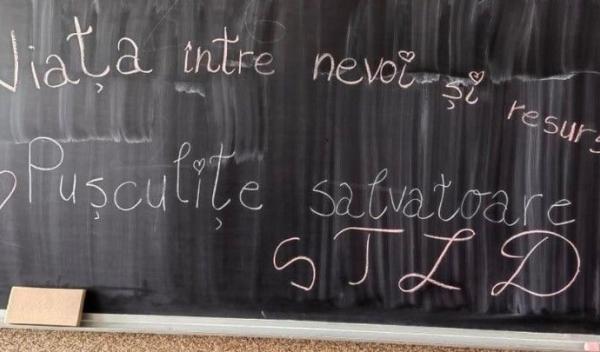 Viața între nevoi și resurs
Pușculițe salvatoare
STLD